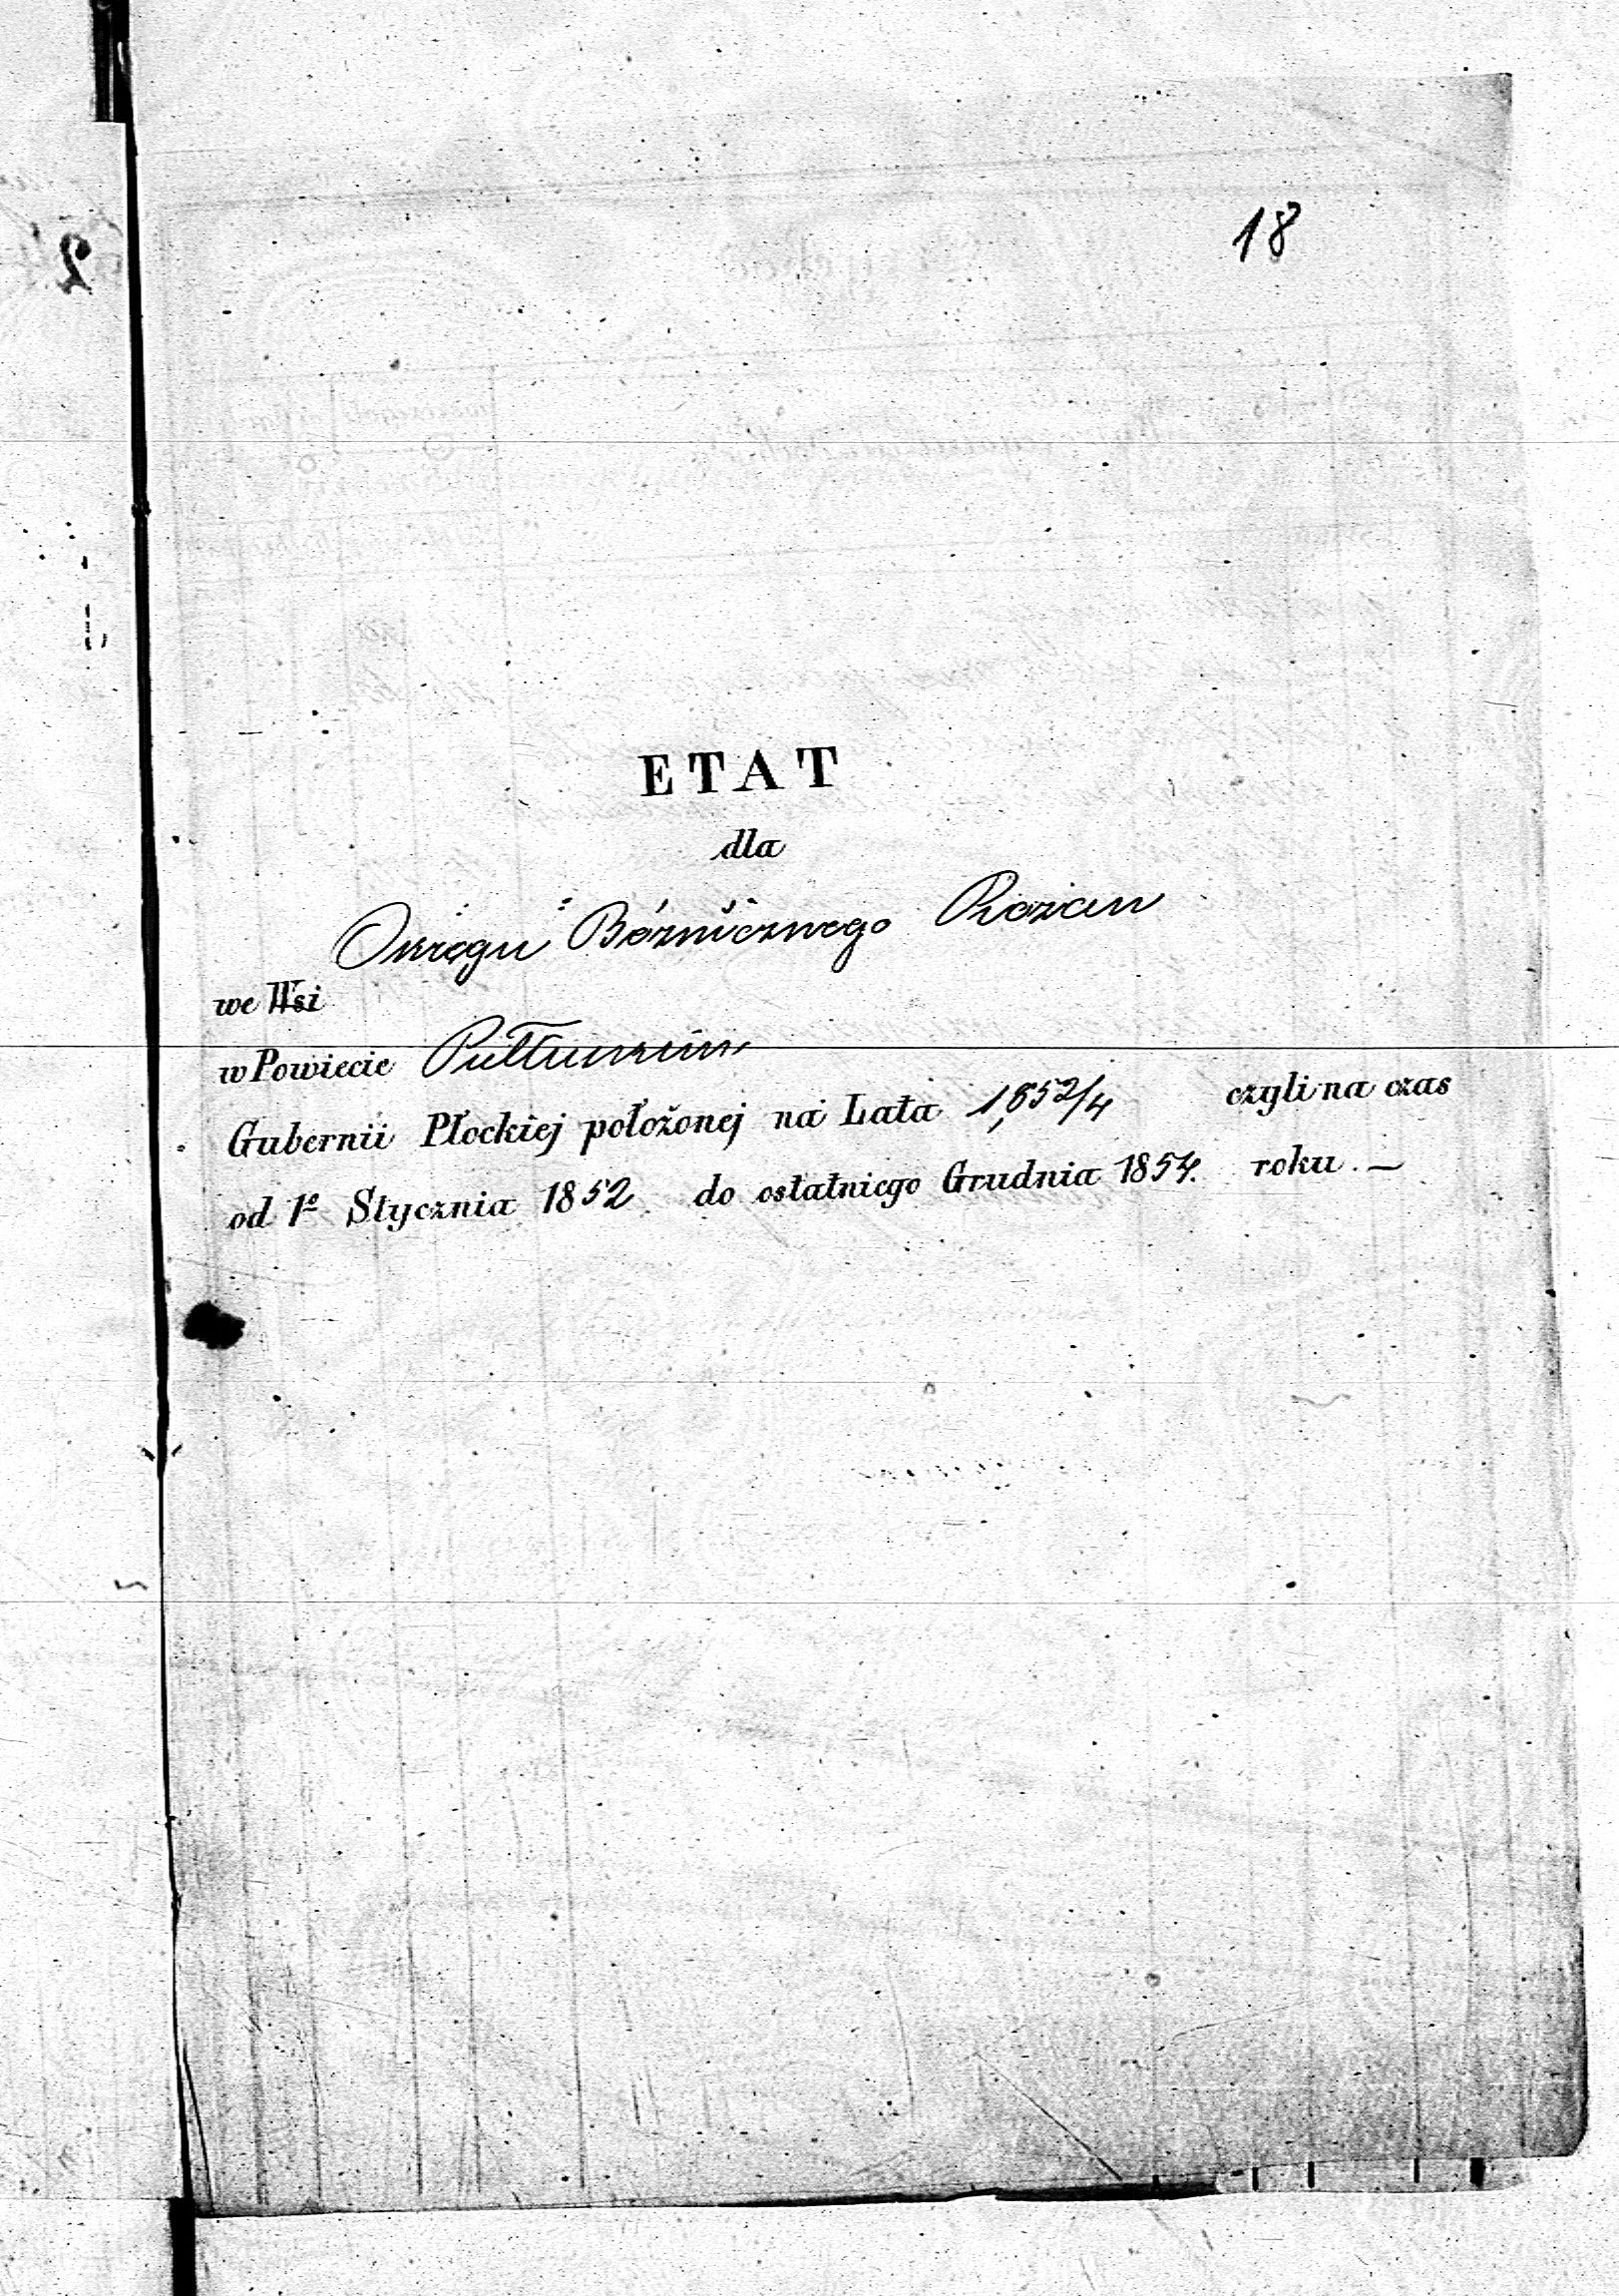 18
ETAT
dla
Okręgu Bóżniczego Rożan
we Wsi
w Powiecie Pułtuskim
Gubernii Płockiej położonej na Lata 1852/4 czyli na czas
od 1º Stycznia 1852 do ostatniego Grudnia 1854. roku. —